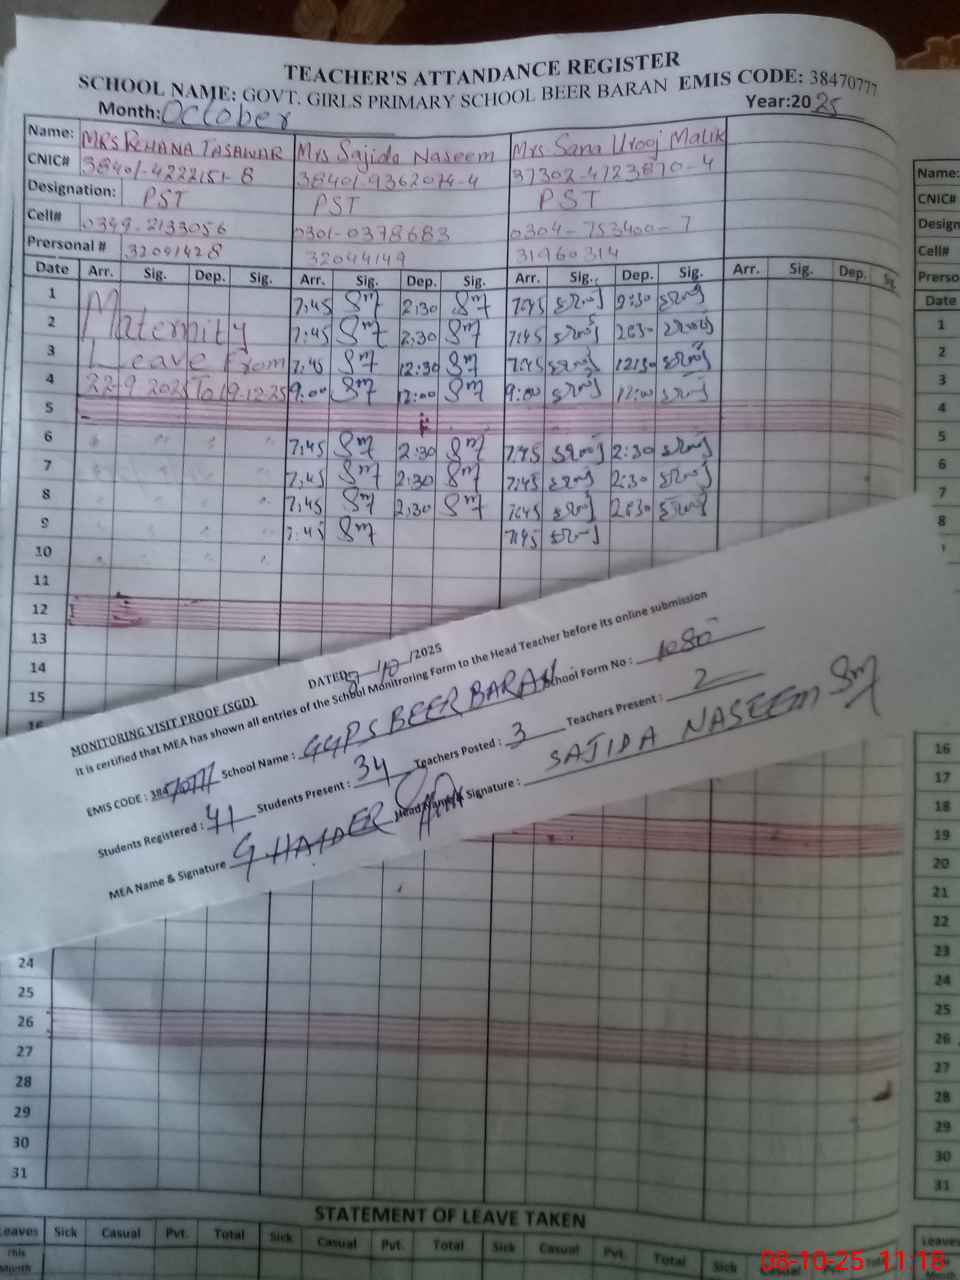 TEACHER'S ATTANDANCE REGISTER
SCHOOL NAME: GOVT. GIRLS PRIMARY SCHOOL BEER BARAN EMIS CODE: 38470777
Month: October Year:20 25
Name: MRS REHANA TASAWAR Mrs Sajida Naseem Mrs Sana Urooj Malik
CNIC# 38401-4222151-8 38401-9362074-4 37302-4723870-4
Designation: PST PST PST
Cell# 0349-2133056 0301-0378683 0304-753400-7
Prersonal # 32091428 32044149 31960314
Date Arr. Sig. Dep. Sig. Arr. Sig. Dep. Sig. Arr. Sig. Dep. Sig. Arr. Sig. Dep. Sig.
1 7:45 Sm 2:30 Sm 7:45 2:30
2 Maternity 7:45 Sm 2:30 Sm 7:45 2:30
3 Leave from 7:45 Sm 12:30 Sm 7:45 12:30
4 22-9 2025 To 19-12-25 9:00 Sm 12:00 Sm 9:00 12:00
5
6 7:45 Sm 2:30 Sm 7:45 2:30
7 7:45 Sm 2:30 Sm 7:45 2:30
8 7:45 Sm 2:30 Sm 7:45 2:30
9 7:45 Sm 7:45
10
11
12
13
14
15
16
MONITORING VISIT PROOF [SGD] DATED: 8/10/2025
It is certified that MEA has shown all entries of the School Monitroring Form to the Head Teacher before its online submission
EMIS CODE : 38470777 School Name : GGPS BEER BARAN School Form No : 1080
Students Registered : 41 Students Present : 34 Teachers Posted : 3 Teachers Present : 2
MEA Name & Signature G HAIDER Head Name & Signature : SAJIDA NASEEM Sm
24
25
26
27
28
29
30
31
STATEMENT OF LEAVE TAKEN
Leaves Sick Casual Pvt. Total Sick Casual Pvt. Total Sick Casual Pvt. Total Sick Casual Pvt. Total
This Month
Name:
CNIC#
Design
Cell#
Perso
Date
1
2
3
4
5
6
7
8
16
17
18
19
20
21
22
23
24
25
26
27
28
29
30
31
Leaves
This Month
08-10-25 11:18